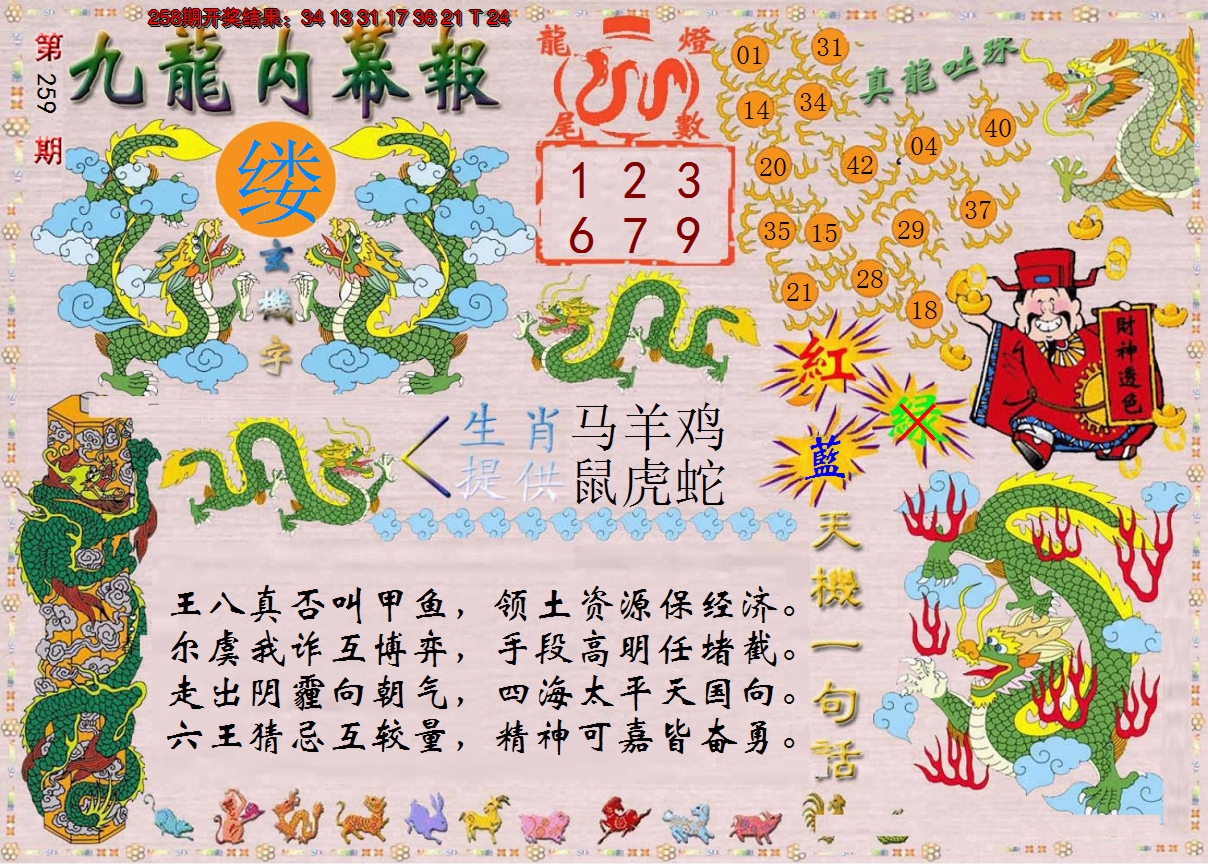 258期开奖结果：34 13 31 17 36 21 T 24
第259期
九龍内幕報
缕
玄機字
龍燈
尾數
1 2 3
6 7 9
真龍吐珠
01
31
14
34
20
42
04
40
35
15
29
37
21
28
18
財神透色
紅
绿
藍
生肖提供
马羊鸡
鼠虎蛇
天機一句話
王八真否叫甲鱼，领土资源保经济。
尔虞我诈互博弈，手段高明任堵截。
走出阴霾向朝气，四海太平天国向。
六王猜忌互较量，精神可嘉皆奋勇。